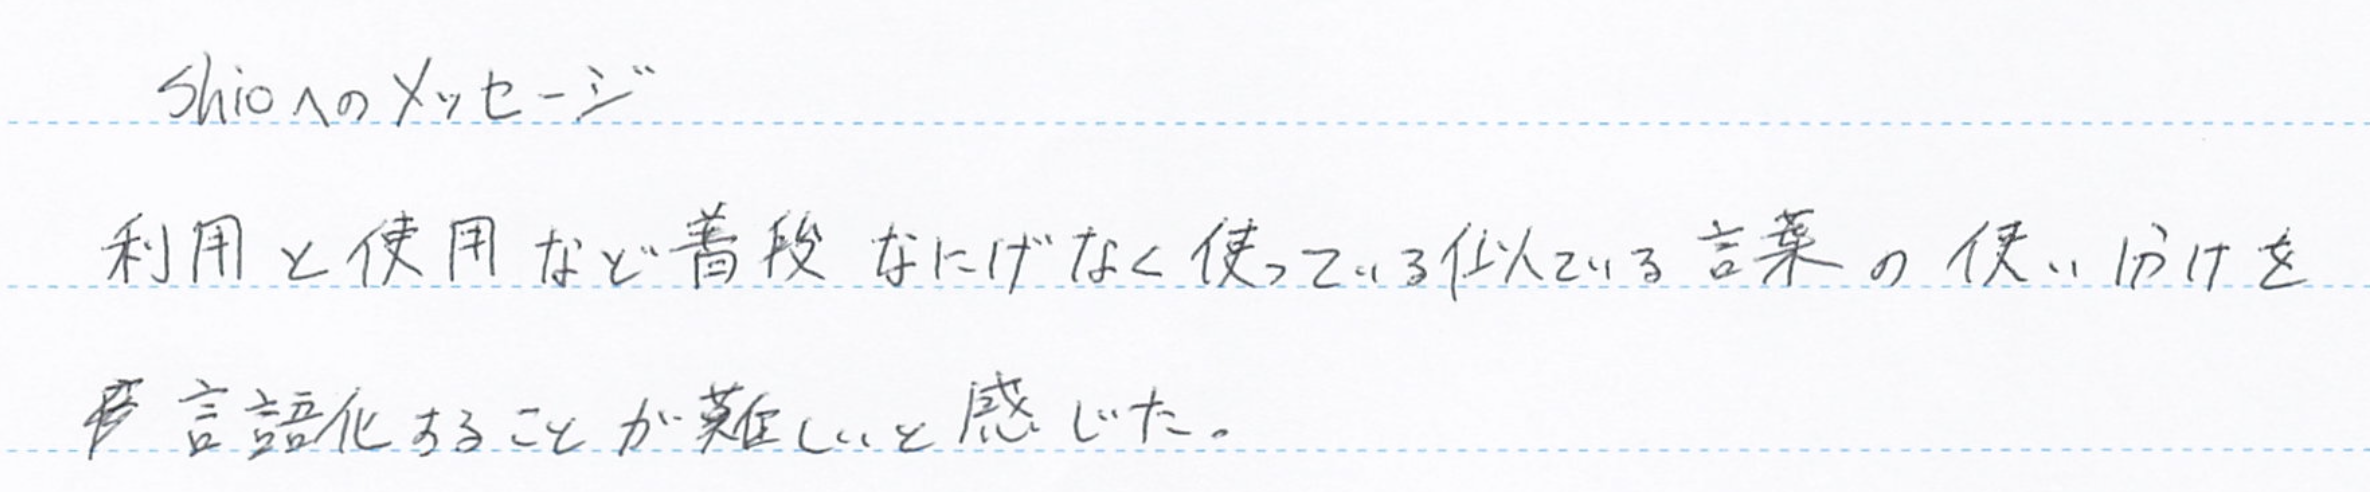 shioへのメッセージ
利用と使用など普段なにげなく使っている似ている言葉の使い分けを
言語化することが難しいと感じた。